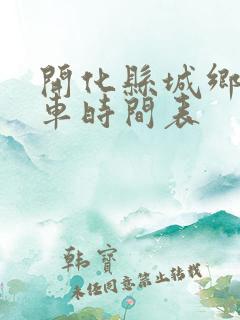 開化縣城鄉
車時間表
韩寶
未经同意禁止转载